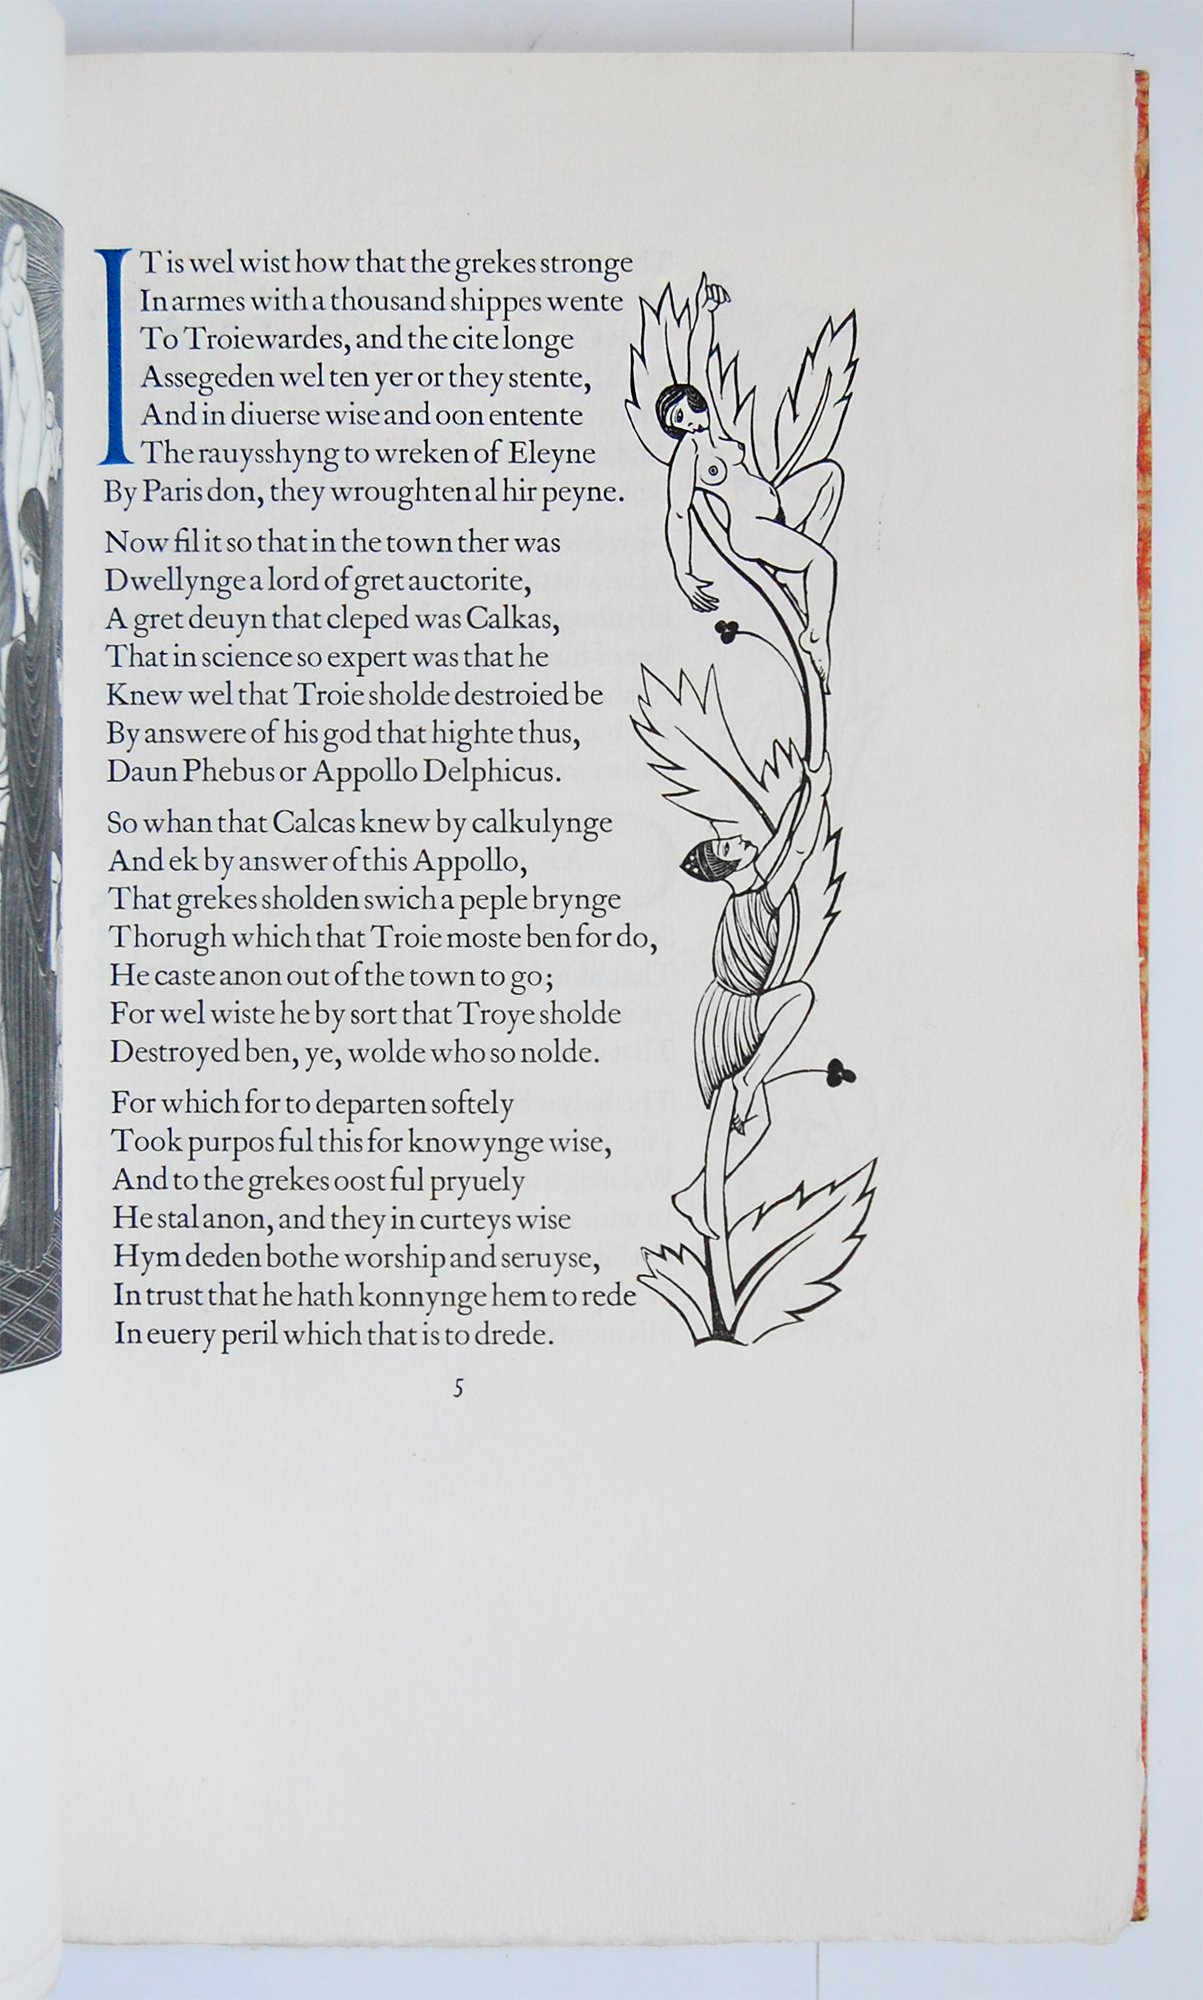 IT is wel wist how that the grekes stronge
In armes with a thousand shippes wente
To Troiewardes, and the cite longe
Assegeden wel ten yer or they stente,
And in diuerse wise and oon entente
The rauysshyng to wreken of Eleyne
By Paris don, they wroughten al hir peyne.
Now fil it so that in the town ther was
Dwellynge a lord of gret auctorite,
A gret deuyn that cleped was Calkas,
That in science so expert was that he
Knew wel that Troie sholde destroied be
By answere of his god that highte thus,
Daun Phebus or Appollo Delphicus.
So whan that Calcas knew by calkulynge
And ek by answer of this Appollo,
That grekes sholden swich a peple brynge
Thorugh which that Troie moste ben for do,
He caste anon out of the town to go;
For wel wiste he by sort that Troye sholde
Destroyed ben, ye, wolde who so nolde.
For which for to departen softely
Took purpos ful this for knowynge wise,
And to the grekes oost ful pryuely
He stal anon, and they in curteys wise
Hym deden bothe worship and seruyse,
In trust that he hath konnynge hem to rede
In euery peril which that is to drede.
5